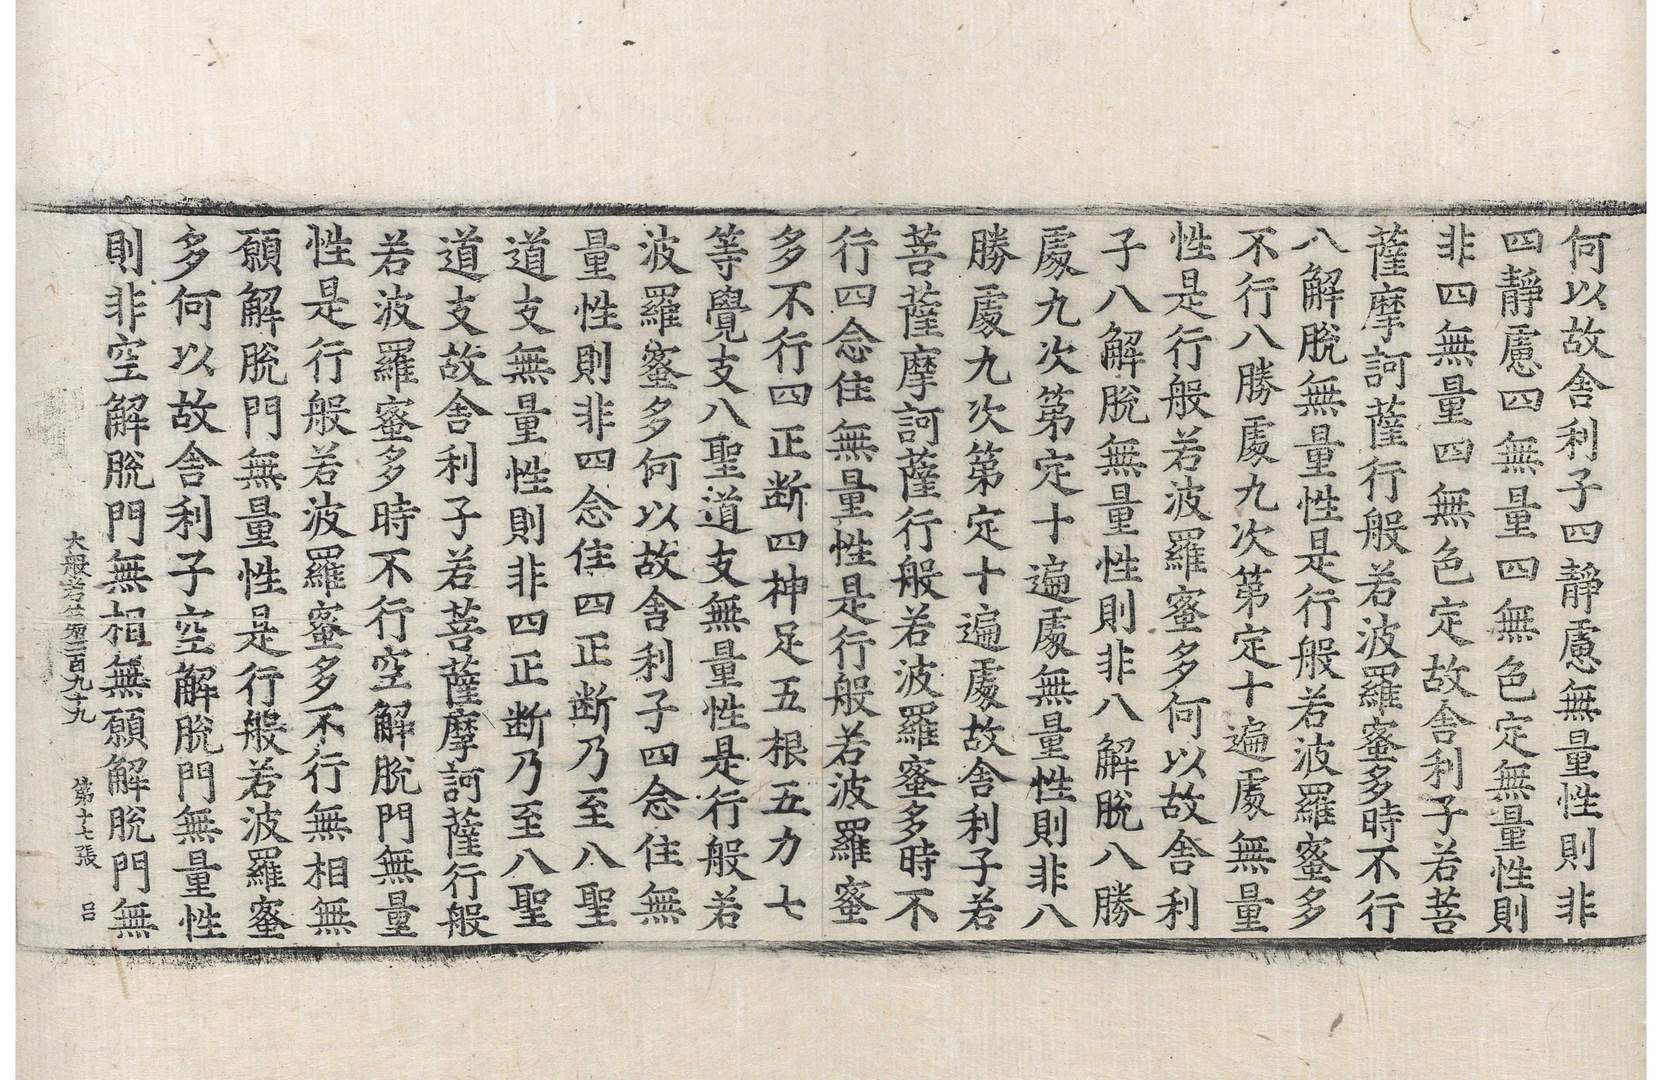 何以故舍利子四靜慮無量性則非
四靜慮四無量四無色定無量性則
非四無量四無色定故舍利子若菩
薩摩訶薩行般若波羅蜜多時不行
八解脫無量性是行般若波羅蜜多
不行八勝處九次第定十遍處無量
性是行般若波羅蜜多何以故舍利
子八解脫無量性則非八解脫八勝
處九次第定十遍處無量性則非八
勝處九次第定十遍處故舍利子若
菩薩摩訶薩行般若波羅蜜多時不
行四念住無量性是行般若波羅蜜
多不行四正断四神足五根五力七
等覺支八聖道支無量性是行般若
波羅蜜多何以故舍利子四念住無
量性則非四念住四正断乃至八聖
道支無量性則非四正断乃至八聖
道支故舍利子若菩薩摩訶薩行般
若波羅蜜多時不行空解脫門無量
性是行般若波羅蜜多不行無相無
願解脫門無量性是行般若波羅蜜
多何以故舍利子空解脫門無量性
則非空解脫門無相無願解脫門無
大般若第二百九十九 第十七張 呂